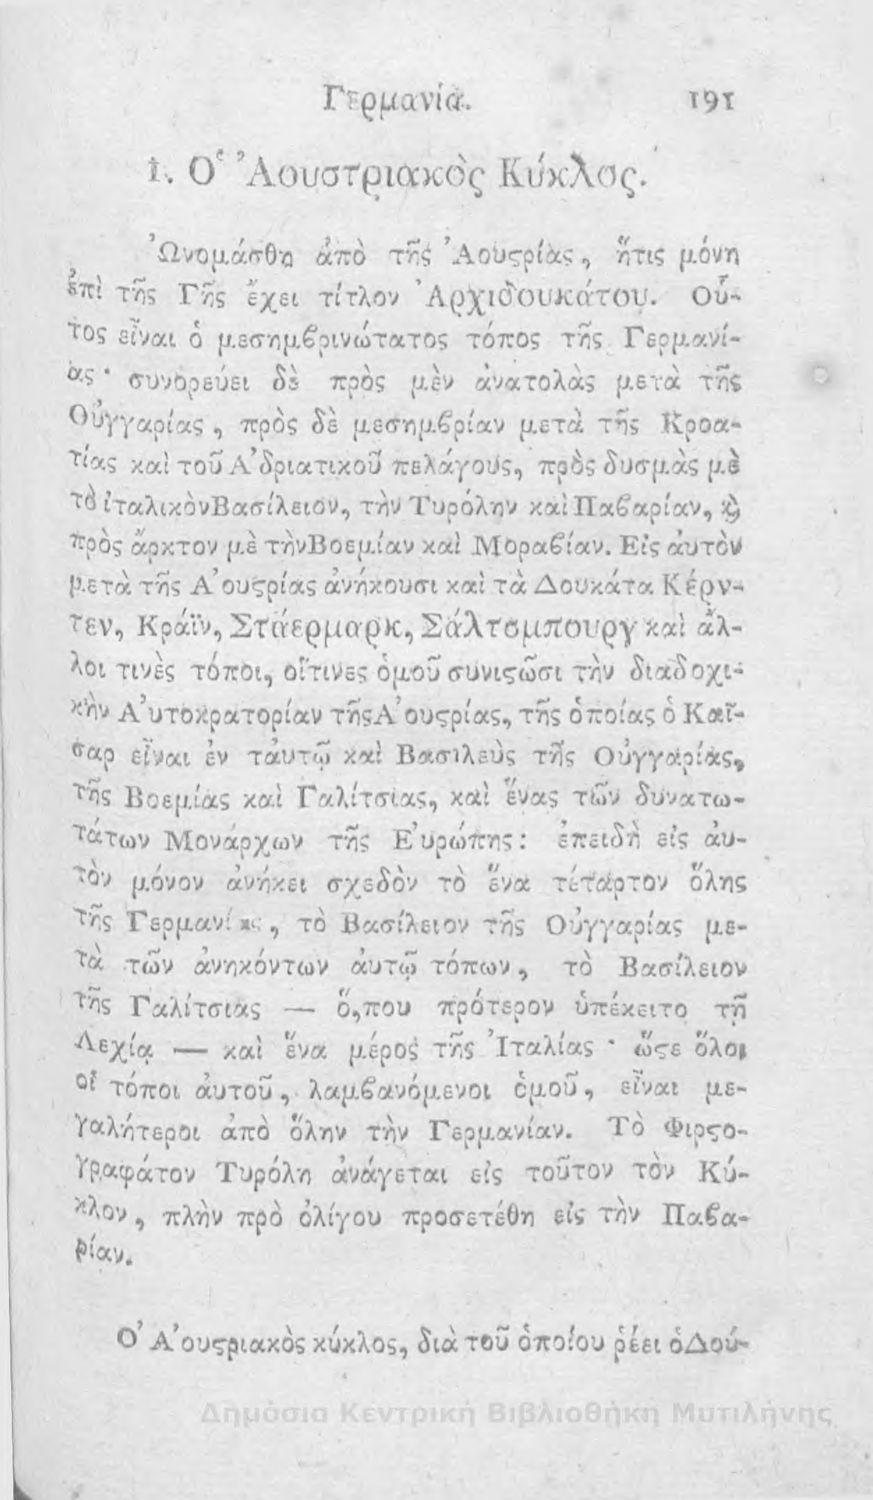 Γερμανία. 191
1. Ὁ Ἀουστριακὸς Κύκλος.
Ὠνομάσθη ἀπὸ τῆς Ἀουςρίας, ἥτις μόνη
ἐπὶ τῆς Γῆς ἔχει τίτλον Ἀρχιδουκάτου. Οὗ-
τος εἶναι ὁ μεσημβρινώτατος τόπος τῆς Γερμανί-
ας· συνορεύει δὲ πρὸς μὲν ἀνατολὰς μετὰ τῆς
Οὑγγαρίας, πρὸς δὲ μεσημβρίαν μετὰ τῆς Κροα-
τίας καὶ τοῦ Ἀδριατικοῦ πελάγους, πρὸς δυσμὰς μὲ
τὸ ἰταλικὸν Βασίλειον, τὴν Τυρόλην καὶ Παβαρίαν, ϗ
πρὸς ἄρκτον μὲ τὴν Βοεμίαν καὶ Μοραβίαν. Εἰς ἀυτὸν
μετὰ τῆς Ἀουςρίας ἀνήκουσι καὶ τὰ Δουκάτα Κέρν-
τεν, Κράϊν, Στάερμαρκ, Σάλτσμπουργ καὶ ἄλ-
λοι τινὲς τόποι, οἵτινες ὁμοῦ συνιςῶσι τὴν διαδοχι-
κὴν Ἀυτοκρατορίαν τῆς Ἀουςρίας, τῆς ὁποίας ὁ Καῖ-
σαρ εἶναι ἐν ταυτῷ καὶ Βασιλεὺς τῆς Οὑγγαρίας,
τῆς Βοεμίας καὶ Γαλίτσιας, καὶ ἕνας τῶν δυνατω-
τάτων Μονάρχων τῆς Ἐυρώπης: ἐπειδὴ εἰς ἀυ-
τὸν μόνον ἀνήκει σχεδὸν τὸ ἕνα τέταρτον ὅλης
τῆς Γερμανίας, τὸ Βασίλειον τῆς Οὑγγαρίας με-
τὰ τῶν ἀνηκόντων ἀυτῷ τόπων, τὸ Βασίλειον
τῆς Γαλίτσιας — ὅ,που πρότερον ὑπέκειτο τῇ
Λεχίᾳ — καὶ ἕνα μέρος τῆς Ἰταλίας· ὥςε ὅλοι
οἱ τόποι ἀυτοῦ, λαμβανόμενοι ὁμοῦ, εἶναι με-
γαλήτεροι ἀπὸ ὅλην τὴν Γερμανίαν. Τὸ Φιρςο-
γραφάτον Τυρόλη ἀνάγεται εἰς τοῦτον τὸν Κύ-
κλον, πλὴν πρὸ ὀλίγου προσετέθη εἰς τὴν Παβα-
ρίαν.
Ὁ Ἀουςριακὸς κύκλος, διὰ τοῦ ὁποίου ῥέει ὁ Δού-
Δημόσια Κεντρική Βιβλιοθήκη Μυτιλήνης